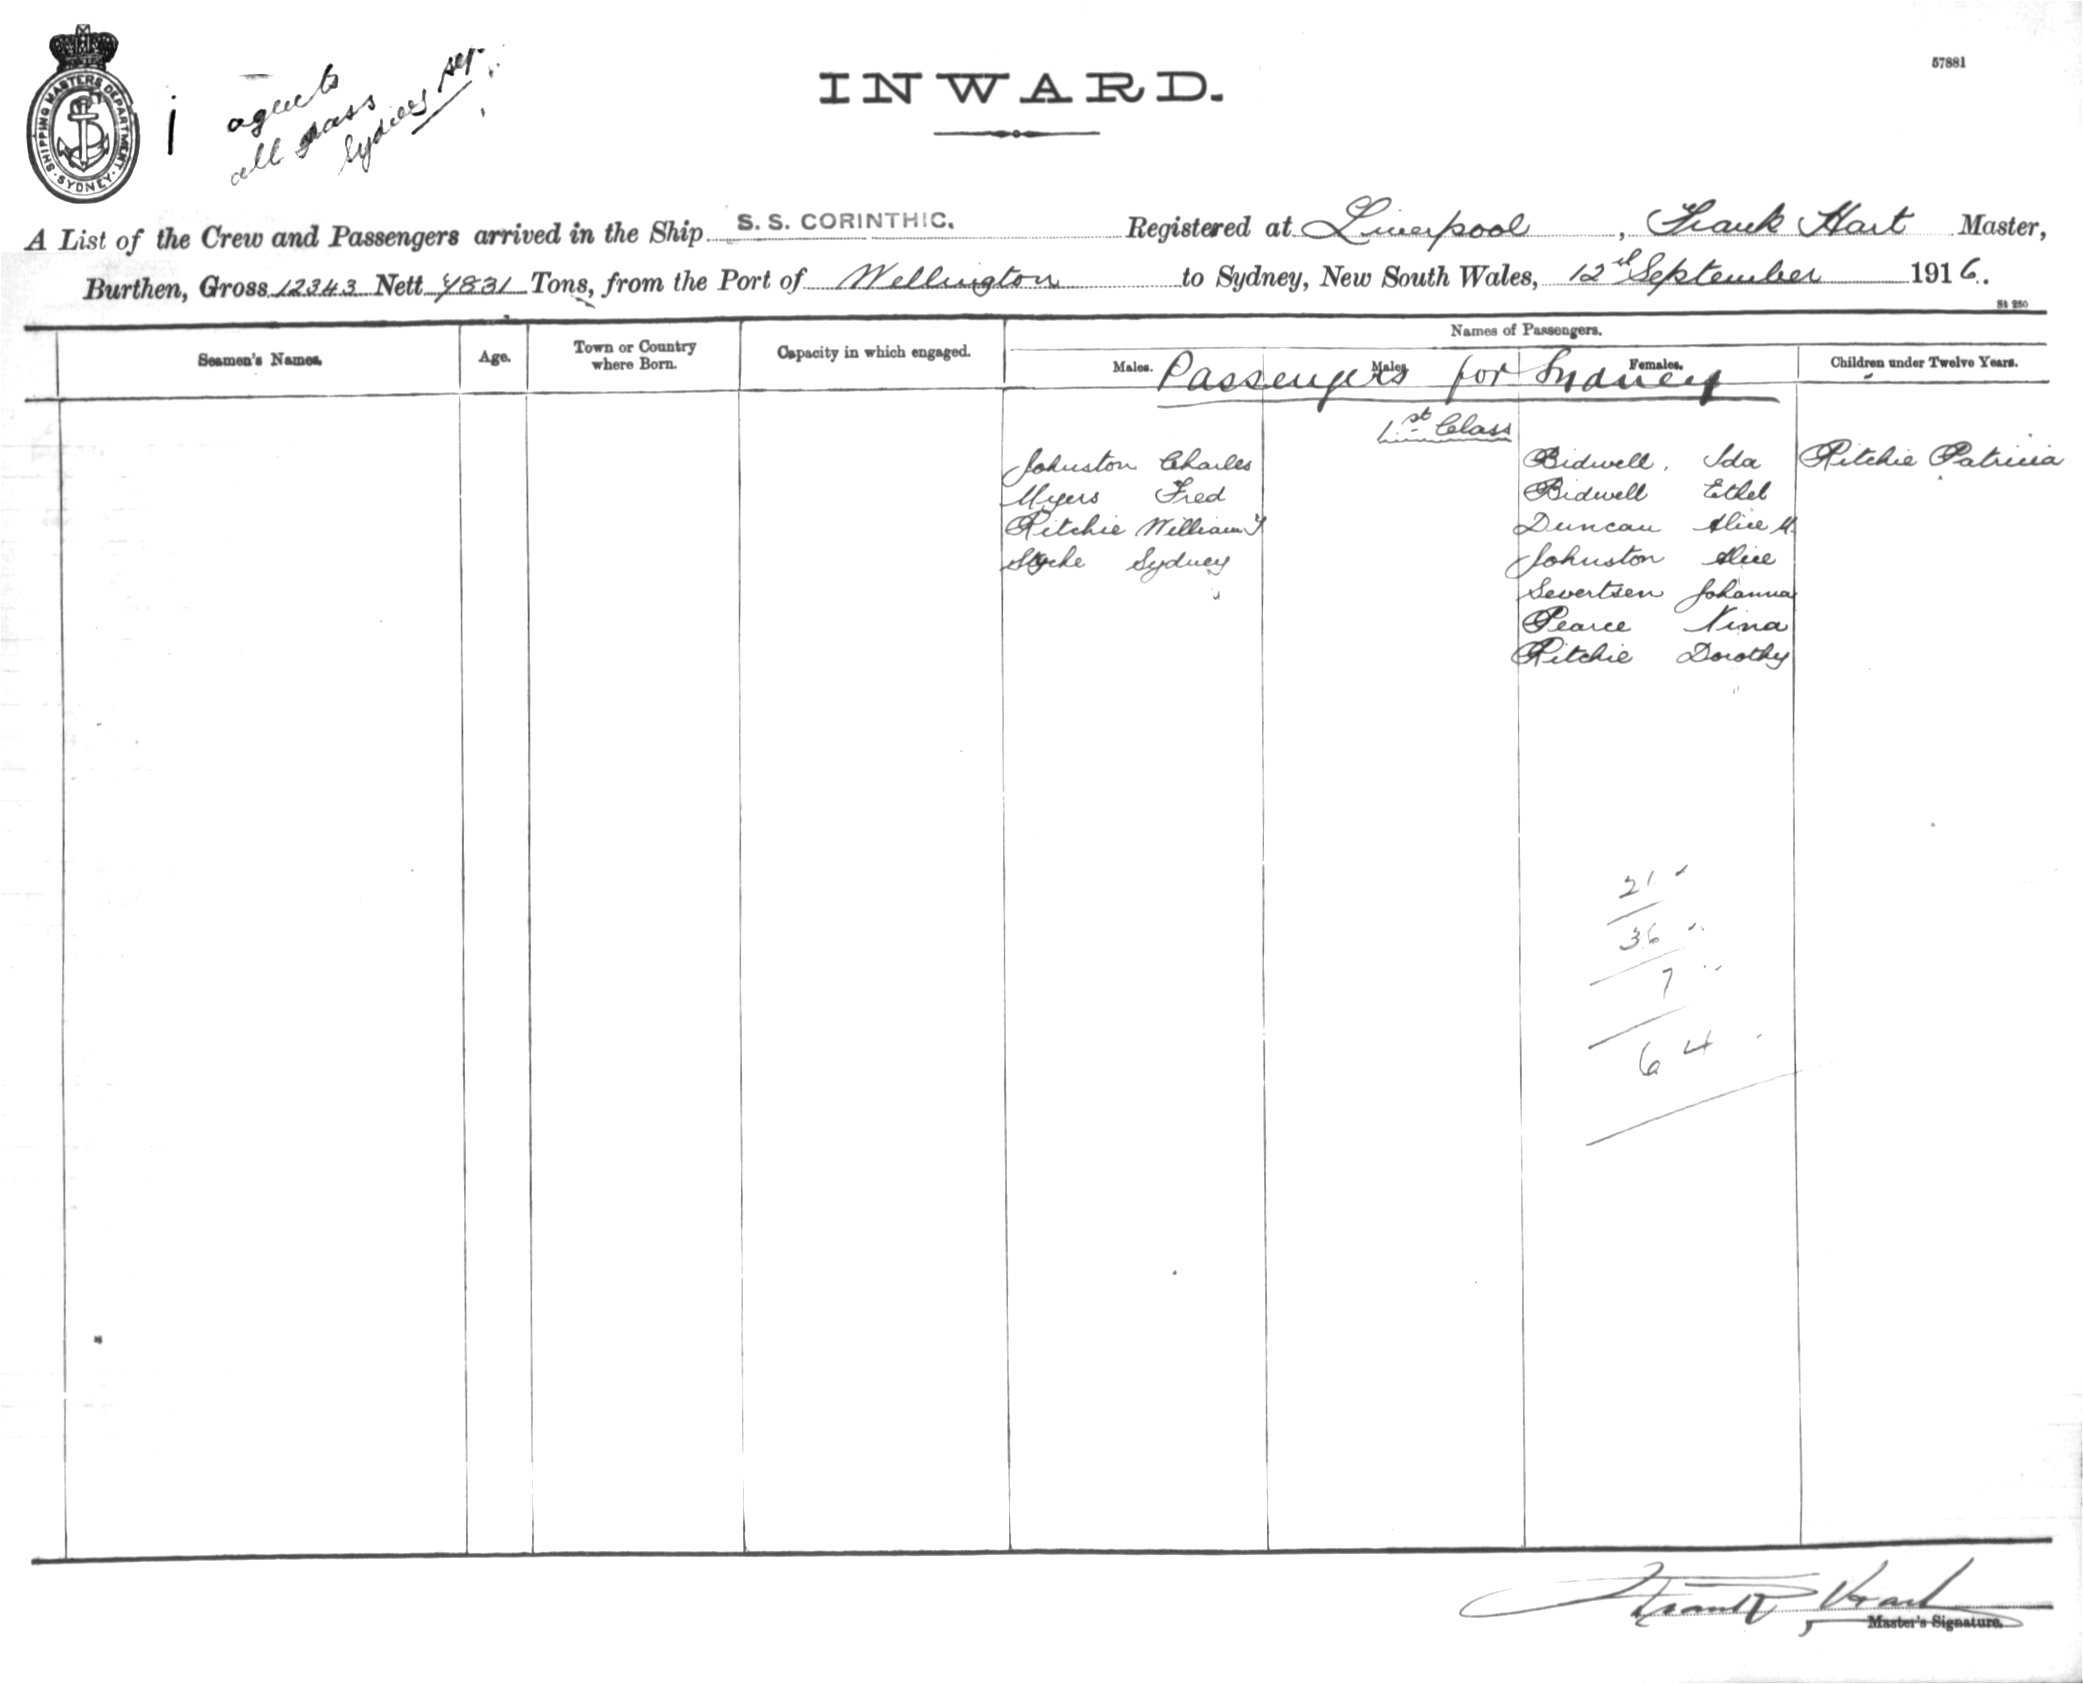 57881
SHIPPING MASTERS DEPARTMENT. SYDNEY.
agents
all pass
Sydney
INWARD.
A List of the Crew and Passengers arrived in the Ship S. S. CORINTHIC. Registered at Liverpool, Frank Hart Master,
Burthen, Gross 12343 Nett 7831 Tons, from the Port of Wellington to Sydney, New South Wales, 12th September 1916.
St 250
Names of Passengers.
Seamen's Names. Age. Town or Country where Born. Capacity in which engaged. Males. Males Females. Children under Twelve Years.
Passengers for Sydney
1st Class
Johnston Charles Bidwell, Ida Ritchie Patricia
Myers Fred Bidwell Ethel
Ritchie William Duncan Alice M.
Sydney Johnston Alice
Severtsen Johanna
Pearce Nina
Ritchie Dorothy
21
36
7
64
Frank Hart
Master's Signature.